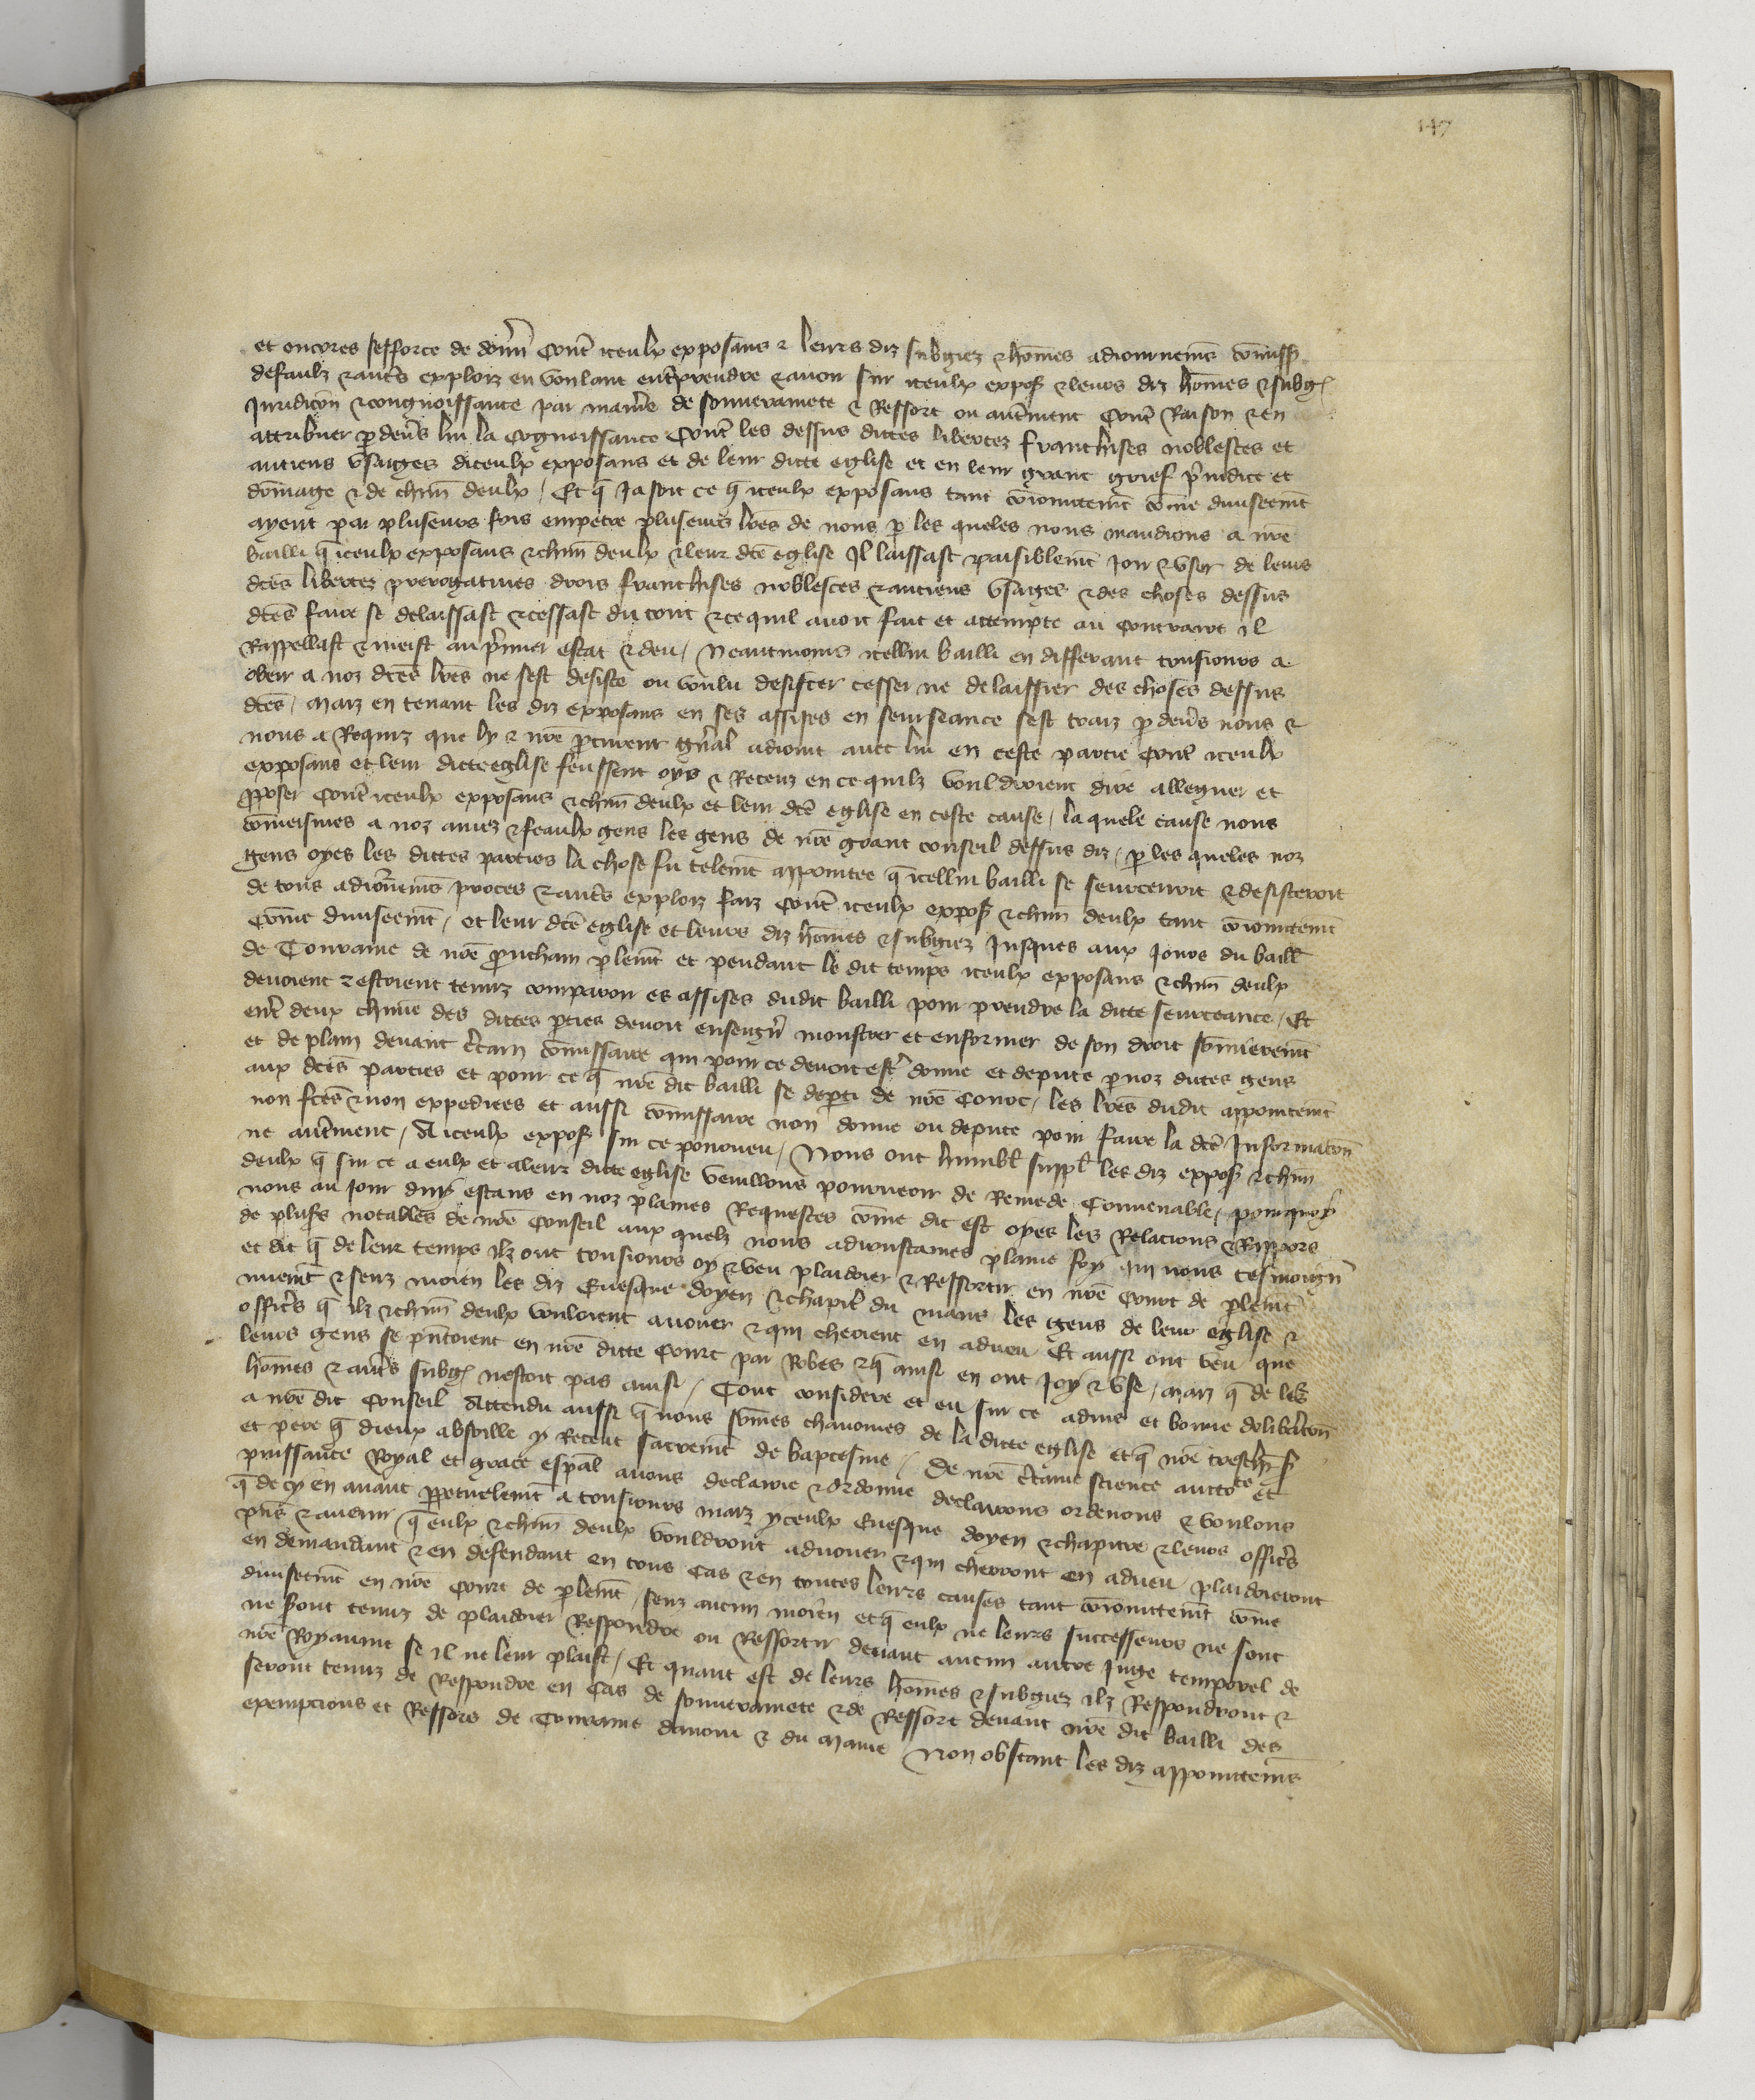 147
et encores sefforce de donn̄ contˀ iceulx exposans & leurs diz subgiez & hōmes adiournemēs cōmiss̄
defaulz & autˀs exploiz en voulant entˀprendre & auoir sur iceulx expos̄ & leurs diz hōmes & subgˀ
Juridicōn & congnoissance par maniˀe de souuerainete & Ressort ou autˀment contˀ Raison & en
attribuer ꝑ deuˀs lui la Cognoissance Contˀ les dessus dittes libertez franchises noblesces et
anciens vsaiges diceulx exposans et de leur ditte eglise et en leur grant grief pˀiudice et
dōmage & de chūn deulx / Et q̄ Ja soit ce q̄ iceulx exposans tant cōiointemēt cōme diuiseemēt
ayent par pluseurs fois empetre pluseurs lrēs de nous ꝑ les queles nous mandions a nrē
bailli q̄ iceulx exposans & chūn deulx & leur dcē eglise Il laissast paisiblemēt Joir & vser de leurs
dcēs libertez prerogatiues drois franchises noblesces & anciens vsaiges & des choses dessus
dcēs faire se delaissast & cessast du tout & ce quil auoit fait et attempte au contraire il
Rappellast & meist au pˀmier estat & deu / Neantmoins icellui bailli en differant tousiours a
obeir a noz dcēs lrēs ne sest desiste ou voulu desister cesser ne delaissier des choses dessus
dcēs / Maiz en tenant les diz exposans en ses assises en seurseance sest traiz ꝑ deuˀs nous &
nous a Requiz que ly & nrē ꝓcureur gnˀal adioint auec lui en ceste partie Contˀ iceulx
exposans et leur ditte eglise feussent oyz & Receuz en ce quilz vouldroient dire alleguer et
ꝓposer Contˀ iceulx exposans & chūn deulx et leur dcē eglise en ceste cause / la quele cause nous
cōmeismes a noz amez & feaulx gens les gens de nrē grant conseil dessus diz / ꝑ les queles noz
gens oyes les dittes parties la chose fu telemēt appointee q̄ icellui bailli se seurcerroit & desisteroit
de tous adioˀnemēs proces & autˀs exploiz faiz contˀ iceulx expos̄ & chūn deulx tant cōiointemēt
Cōme diuiseemēt / et leur dcē eglise et leurs diz hōmes & subgiez Jusques aux Jours du baill̄
de Touraine de nrē ꝓuchain ꝑlemēt et pendant le dit temps iceulx exposans & chūn deulx
deuoient & estoient tenuz comparoir es assises dudit bailli pour prendre la ditte seurceance / Et
entˀ deux chūne des dittes ꝑties deuoit enseignˀ monstrer et enformer de son droit sōmieremēt
et de plain deuant cˀtain cōmissaire qui pour ce deuoit estˀ donne et depute ꝑ noz dittes gens
aux dcēs parties et pour ce q̄ nrē dit bailli se deꝑti de nrē Court / les lrēs dudit appointemēt
non fcēs & non expediees et aussi cōmissaire non donne ou depute pour faire la dcē Informacōn
ne autˀment / A iceulx expos̄ sur ce pourueu / Nous ont humbl̄ suppl̄ les diz expos̄ & chūn
deulx q̄ sur ce a eulx et a leur ditte eglise veuillons pourueoir de Remede Conuenable / pourquoy
nous au Jour duy estans en noz plaines Requestes cōme dit est oyes les Relacions & Rappors
de plusˀs notables de nrē Conseil aux quelz nous adioustames plaine foy qui nous tesmoignˀ
et dit q̄ de leur temps ilz ont tousiours oy & veu plaidoier & Ressortir en nrē Court de ꝑlemēt
nuemēt & senz moien les diz Euesque doyen & chapitˀ du mans les gens de leur eglise &
officˀs q̄ ilz & chūn deulx vouloient auouer & qui cheoient en adueu Et aussi ont veu que
leurs gens se pˀntoient en nrē ditte Court par Robes & q̄ ainsi en ont Joy & vse / Maiz q̄ de leˀs
hōmes & autˀs subgˀ nestoit pas ainsi / Tout considere et eu sur ce aduis et bonne delibˀacōn
a nrē dit Conseil Attendu aussi q̄ nous sōmes chanoines de la ditte eglise et q̄ nrē treschˀ sˀ
et pere q̄ dieux absoille y Receut sacremēt de baptesme / De nrē cˀtaine science auctote et
puissance Royal et grace espāl auons declairie & ordonne declairons ordenons & voulons
q̄ de cy en auant ꝑpetuelemēt a tousiours maiz yceulx Euesque doyen & chapitre & leurs officˀs
pˀns & auenir q̄ eulx & chūn deulx vouldront aduouer & qui cherront en adueu plaidoieront
en demandant & en defendant en tous cas & en toutes leurs causes tant cōiointtemēt cōme
diuisemēt en nrē Court de ꝑlemēt / senz aucun moien et q̄ eulx ne leurs successeurs ne sont
ne sˀont tenuz de plaidoier Respondre ou Ressortir deuant aucun autre Juge temporel de
nrē Royaume se il ne leur plaist / Et quant est de leurs hōmes & subgiez ilz Respondront &
seront tenuz de Respondre en cas de souuerainete & de Ressort deuant nrē dit bailli des
exempcions et Ressors de Touraine danjou & du Maine Non obstant les diz appointtemēs